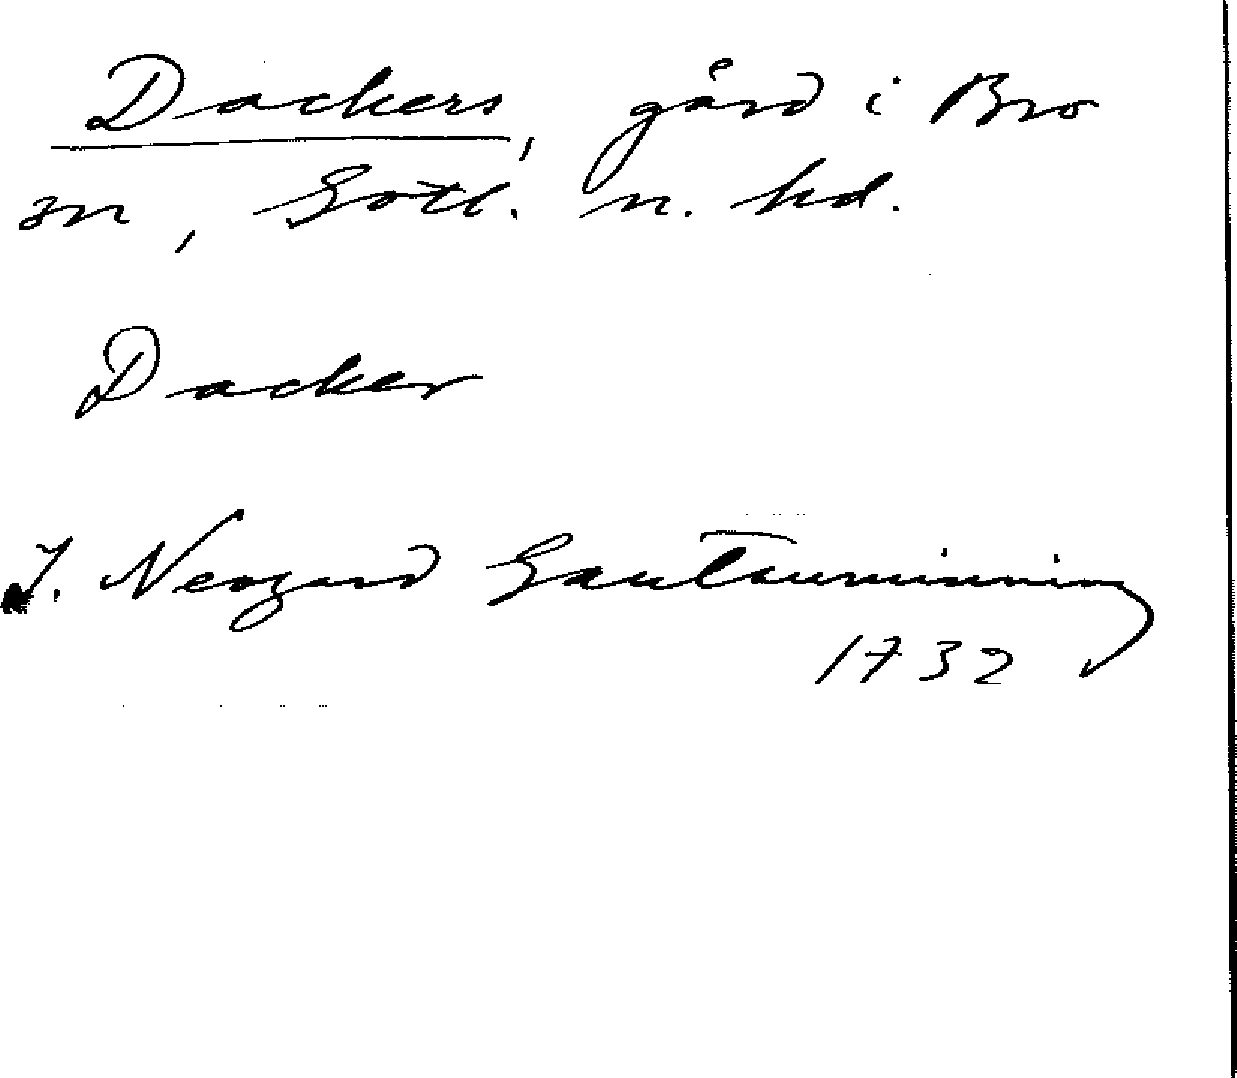 Dackers, gård i Bro
sn, Gotl. n. hd.
Dacker
J. Neogard Gautauminning
1732